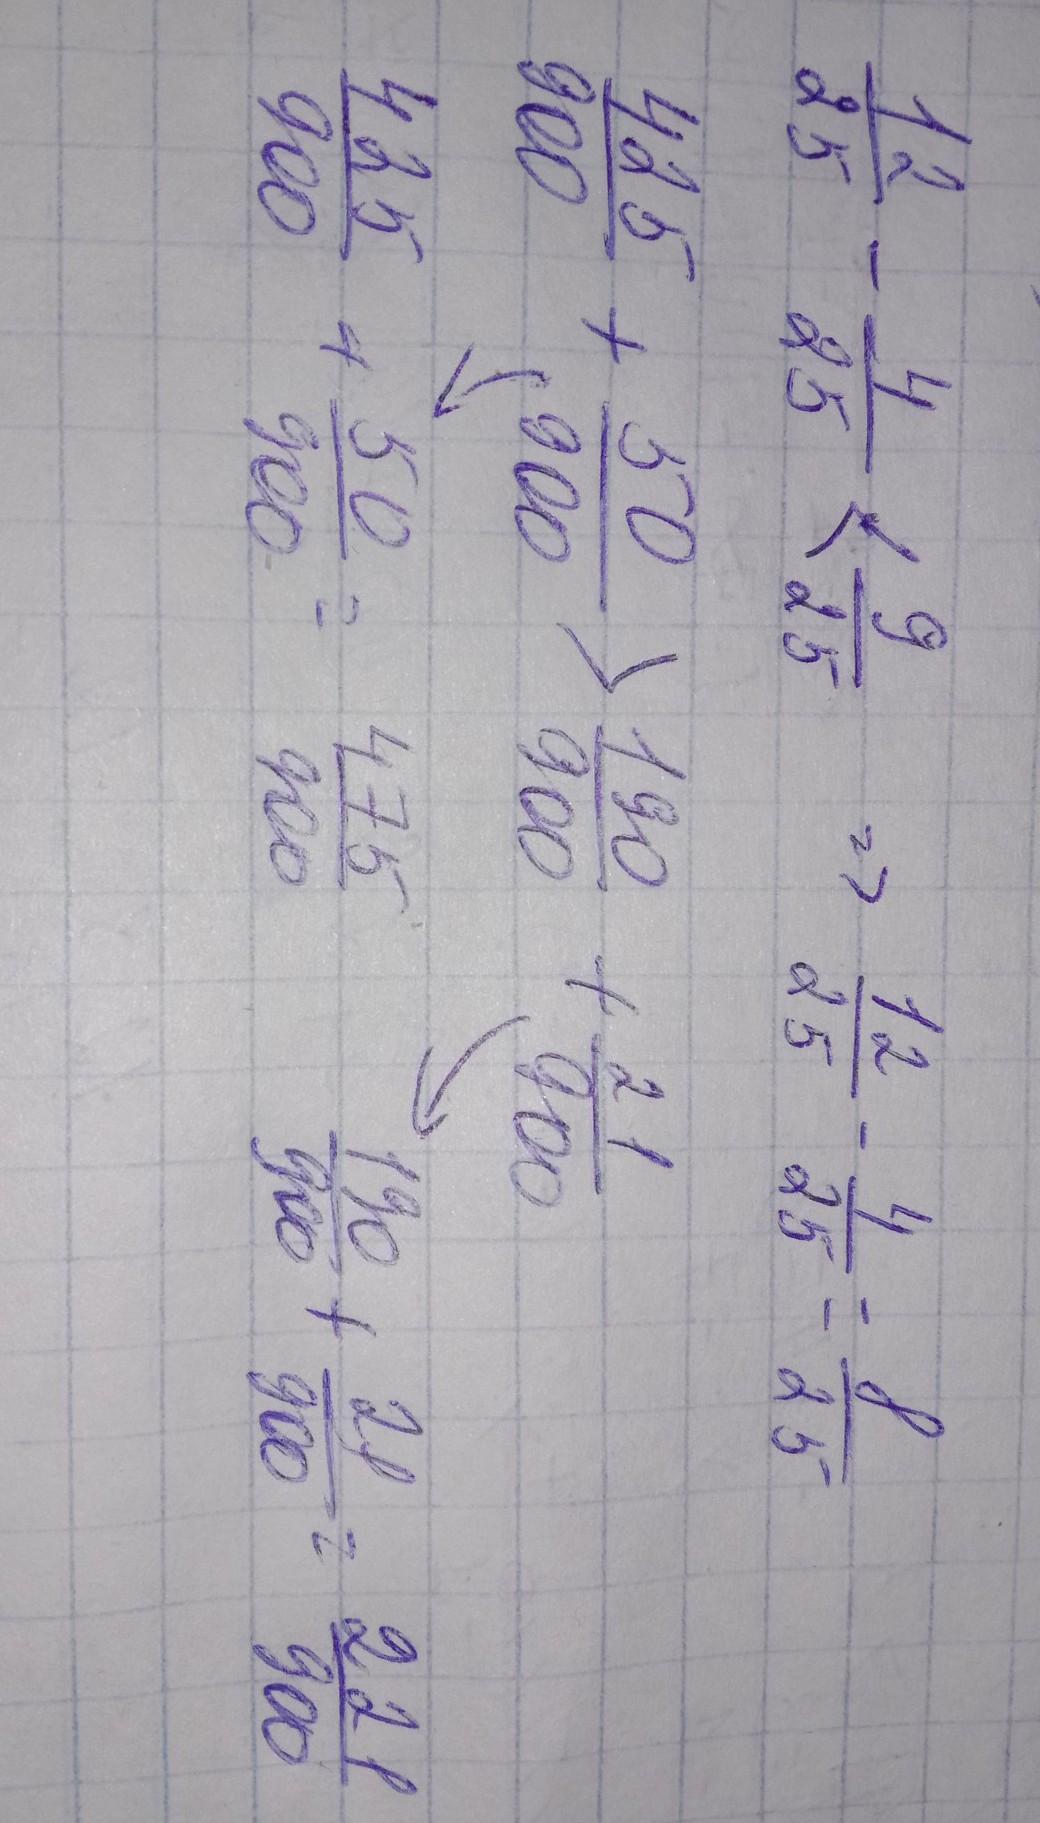 12/25 - 4/25 < 9/25 => 12/25 - 4/25 = 8/25
425/900 + 50/900 > 190/900 + 21/900
425/900 + 50/900 = 475/900 190/900 + 21/900 = 221/900